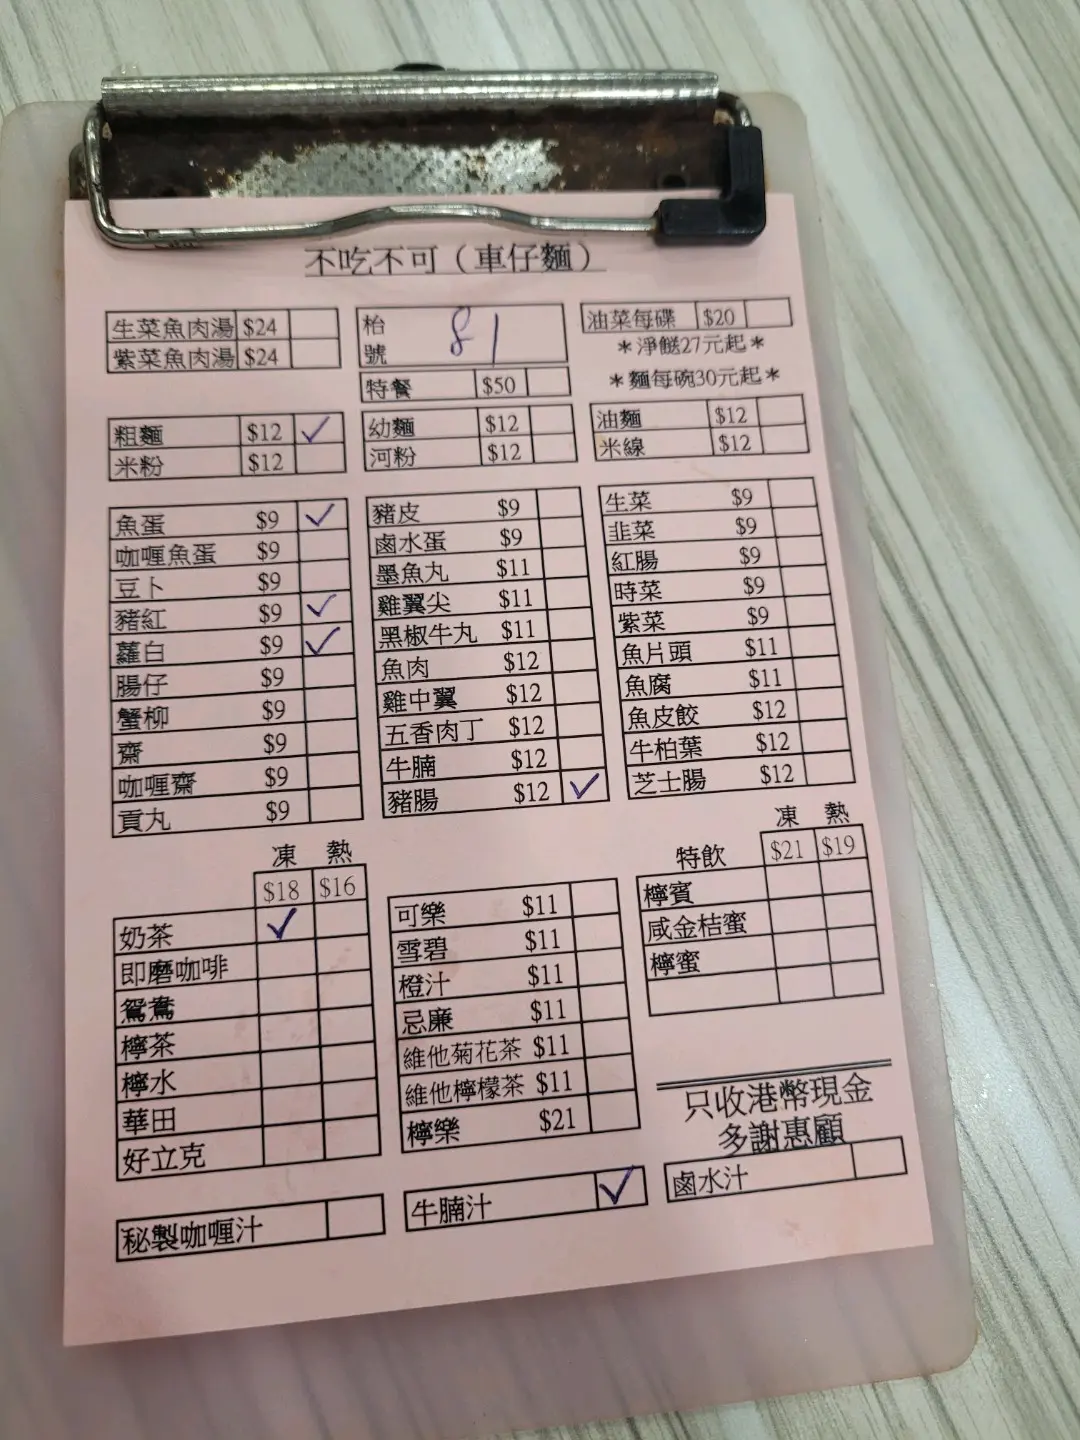 不吃不可（車仔麵）
生菜魚肉湯 $24
紫菜魚肉湯 $24
枱號 81
特餐 $50
油菜每碟 $20
＊淨餸27元起＊
＊麵每碗30元起＊
粗麵 $12 ✓
米粉 $12
幼麵 $12
河粉 $12
油麵 $12
米線 $12
魚蛋 $9 ✓
咖喱魚蛋 $9
豆卜 $9
豬紅 $9 ✓
蘿白 $9 ✓
腸仔 $9
蟹柳 $9
齋 $9
咖喱齋 $9
貢丸 $9
豬皮 $9
鹵水蛋 $9
墨魚丸 $11
雞翼尖 $11
黑椒牛丸 $11
魚肉 $12
雞中翼 $12
五香肉丁 $12
牛腩 $12
豬腸 $12 ✓
生菜 $9
韭菜 $9
紅腸 $9
時菜 $9
紫菜 $9
魚片頭 $11
魚腐 $11
魚皮餃 $12
牛柏葉 $12
芝士腸 $12
凍 熱
$18 $16
奶茶 ✓
即磨咖啡
鴛鴦
檸茶
檸水
華田
好立克
可樂 $11
雪碧 $11
橙汁 $11
忌廉 $11
維他菊花茶 $11
維他檸檬茶 $11
檸樂 $21
凍 熱
特飲 $21 $19
檸賓
咸金桔蜜
檸蜜
只收港幣現金
多謝惠顧
秘製咖喱汁
牛腩汁 ✓
鹵水汁